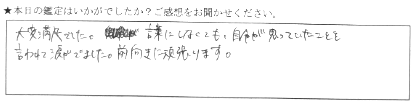 ★本日の鑑定はいかがでしたか？ご感想をお聞かせください。
大変満足でした。言葉にしなくても、自分が思っていたことを
言われて涙がでました。前向きに頑張ります。